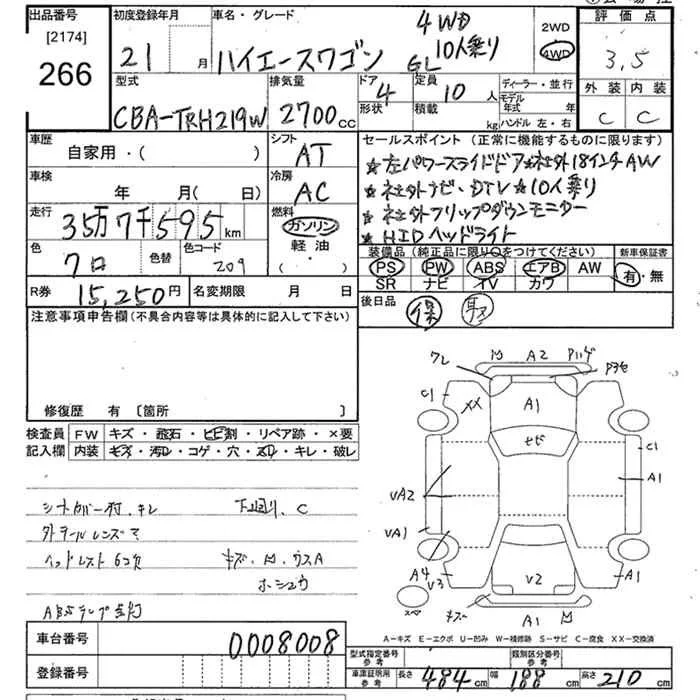 出品番号
[2174]
266
初度登録年月
21 月
車名・グレード
ハイエースワゴン
GL
4WD
10人乗り
2WD
4WD
評価点
3.5
外装 内装
C C
型式
CBA-TRH219W
排気量
2700cc
ドア 4
形状
定員 10人
積載 kg
ディーラー・並行
モデル年式 年
ハンドル 左・右
車歴
自家用・( )
シフト
AT
車検
年 月( 日)
冷房
AC
走行
35万7千595km
燃料
ガソリン
軽油
( ・ )
色
クロ
色替
色コード
209
R券 15,250円
名変期限 月 日
セールスポイント(正常に機能するものに限ります)
★左パワースライドドア★社外18インチAW
★社外ナビ・DTV★10人乗り
★社外フリップダウンモニター
★HIDヘッドライト
装備品(純正品に限り○をつけてください)
PS PW ABS エアB AW
SR ナビ TV カワ
新車保証書
有・無
後日品
保 取
注意事項申告欄(不具合内容等は具体的に記入して下さい)
修復歴 有 [箇所 ]
検査員記入欄
FW キズ・飛石・ヒビ割・リペア跡・×要
内装 キズ・汚レ・コゲ・穴・スレ・キレ・破レ
シートカバー付、キレ
下回り、C
外テールレンズ
ヘッドレスト6コ欠
キズ、M、ウスA
ABSランプ点灯
ワレ M A2
C1 XX A1
C1
A1
UA2
UA1
A4 V3
V2
A1
キズ A1 M
A-キズ E-エクボ U-凹み W-補修跡 S-サビ C-腐食 XX-交換済
車台番号 0008008
登録番号
型式指定番号 参考
類別区分番号 参考
車庫証明用 参考 長さ 484cm 幅 188cm 高さ 210cm